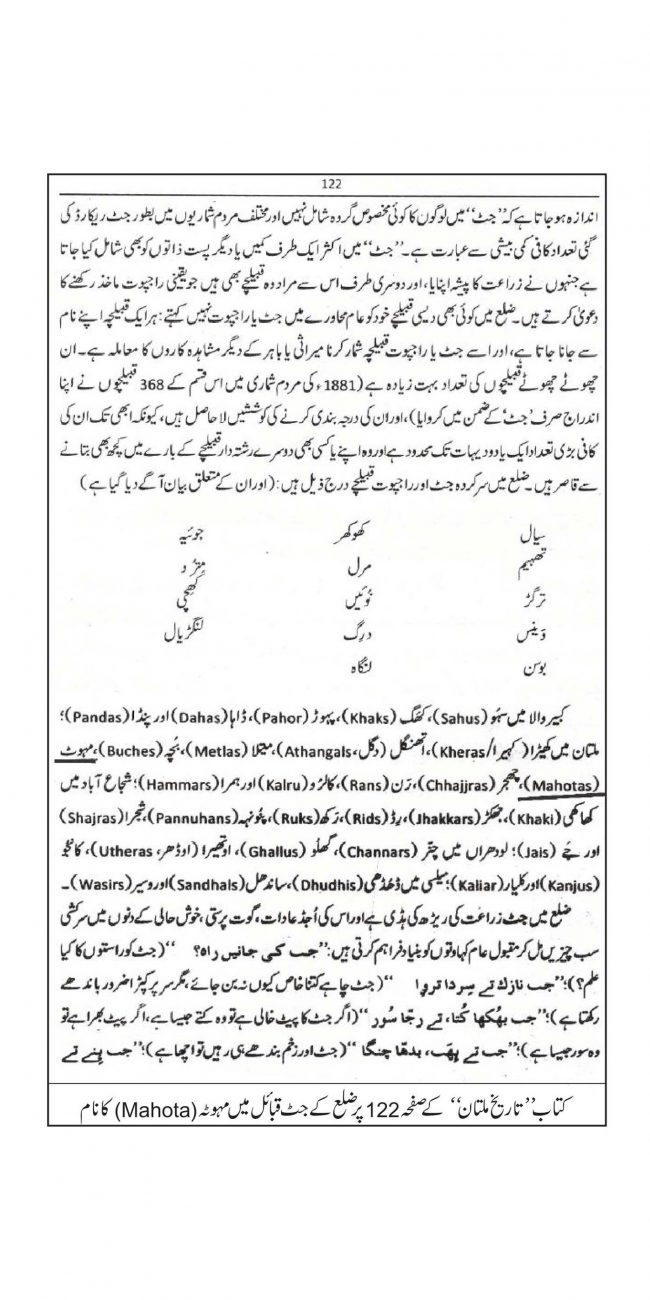 122
اندازہ ہو جاتا ہے کہ ’’جٹ‘‘ میں لوگوں کا کوئی مخصوص گروہ شامل نہیں اور مختلف مردم شماریوں میں بطور جٹ ریکارڈ کی
گئی تعداد کافی کمی بیشی سے عبارت ہے۔ ’’جٹ‘‘ میں اکثر ایک طرف کمیں یا دیگر پست ذاتوں کو بھی شامل کیا جاتا
ہے جنہوں نے زراعت کا پیشہ اپنایا، اور دوسری طرف اس سے مراد وہ قبیلچے بھی ہیں جو یقینی راجپوت ماخذ رکھنے کا
دعویٰ کرتے ہیں۔ ضلع میں کوئی بھی دیسی قبیلچے خود کو عام محاورے میں جٹ یا راجپوت نہیں کہتے: ہر ایک قبیلچہ اپنے نام
سے جانا جاتا ہے، اور اسے جٹ یا راجپوت قبیلچہ شمار کرنا میراثی یا باہر کے دیگر مشاہدہ کاروں کا معاملہ ہے۔ ان
چھوٹے چھوٹے قبیلچوں کی تعداد بہت زیادہ ہے (1881ء کی مردم شماری میں اس قسم کے 368 قبیلچوں نے اپنا
اندراج صرف ’جٹ‘ کے ضمن میں کروایا)، اور ان کی درجہ بندی کرنے کی کوششیں لاحاصل ہیں، کیونکہ ابھی تک ان کی
کافی بڑی تعداد ایک یا دو دیہات تک محدود ہے اور وہ اپنے یا کسی بھی دوسرے رشتہ دار قبیلچے کے بارے میں کچھ بھی بتانے
سے قاصر ہیں۔ ضلع میں سرکردہ جٹ اور راجپوت قبیلچے درج ذیل ہیں: (اور ان کے متعلق بیان آگے دیا گیا ہے)
سیال کھوکھر جوئیہ
تھہیم مرل مترو
ترگڑ نوئیں کھچی
وَینس درگ لنگڑیال
بوسن لنگاہ
کبیر والا میں سہُو (Sahus)، کھگ (Khaks)، پہوڑ (Pahor)، ڈاہا (Dahas) اور پنڈا (Pandas)؛
ملتان میں کھیڑا (کہیرا/Kheras)، اتھنگل (دگل، Athangals)، میتلا (Metlas)، بُچہ (Buches)، مہوٹ
(Mahotas)، چھجر (Chhajjras)، رَن (Rans)، کالڑو (Kalru) اور ہمرا (Hammars)؛ شجاع آباد میں
کھاکھی (Khaki)، جھکڑ (Jhakkars)، رِڈ (Rids)، رَکھ (Ruks)، پنُونہہ (Pannuhans)، شجرا (Shajras)
اور جَے (Jais)؛ لودھراں میں چنّر (Channars)، گھلُو (Ghallus)، اوتھیرا (اوڈھر، Utheras)، کانجُو
(Kanjus) اور کلیار (Kaliar)؛ میلسی میں ڈھُڈھی (Dhudhis)، ساندھل (Sandhals) اور وسیر (Wasirs)۔
ضلع میں جٹ زراعت کی ریڑھ کی ہڈی ہے اور اس کی اُجڈ عادات، گوت پرستی، خوش حالی کے دنوں میں سرکشی
سب چیزیں مل کر مقبول عام کہاوتوں کو بنیاد فراہم کرتی ہیں: ’’جٹ کی جانیں راہ؟‘‘ (جٹ کو راستوں کا کیا
علم؟)؛ ’’جٹ نازک تے سِر دا تروا‘‘ (جٹ چاہے کتنا خاص کیوں نہ بن جائے، مگر سر پر کپڑا ضرور باندھے
رکھتا ہے)؛ ’’جٹ بھُکھا کُتا، تے رجا سُور‘‘ (اگر جٹ کا پیٹ خالی ہے تو وہ کتے جیسا ہے، اگر پیٹ بھرا ہے تو
وہ سور جیسا ہے)؛ ’’جٹ تے پھٹ، بدھا چنگا‘‘ (جٹ اور زخم بندھے ہی رہیں تو اچھا ہے)؛ ’’جٹ بنے تے
کتاب ’’تاریخ ملتان‘‘ کے صفحہ 122 پر ضلع کے جٹ قبائل میں مہوٹہ (Mahota) کا نام